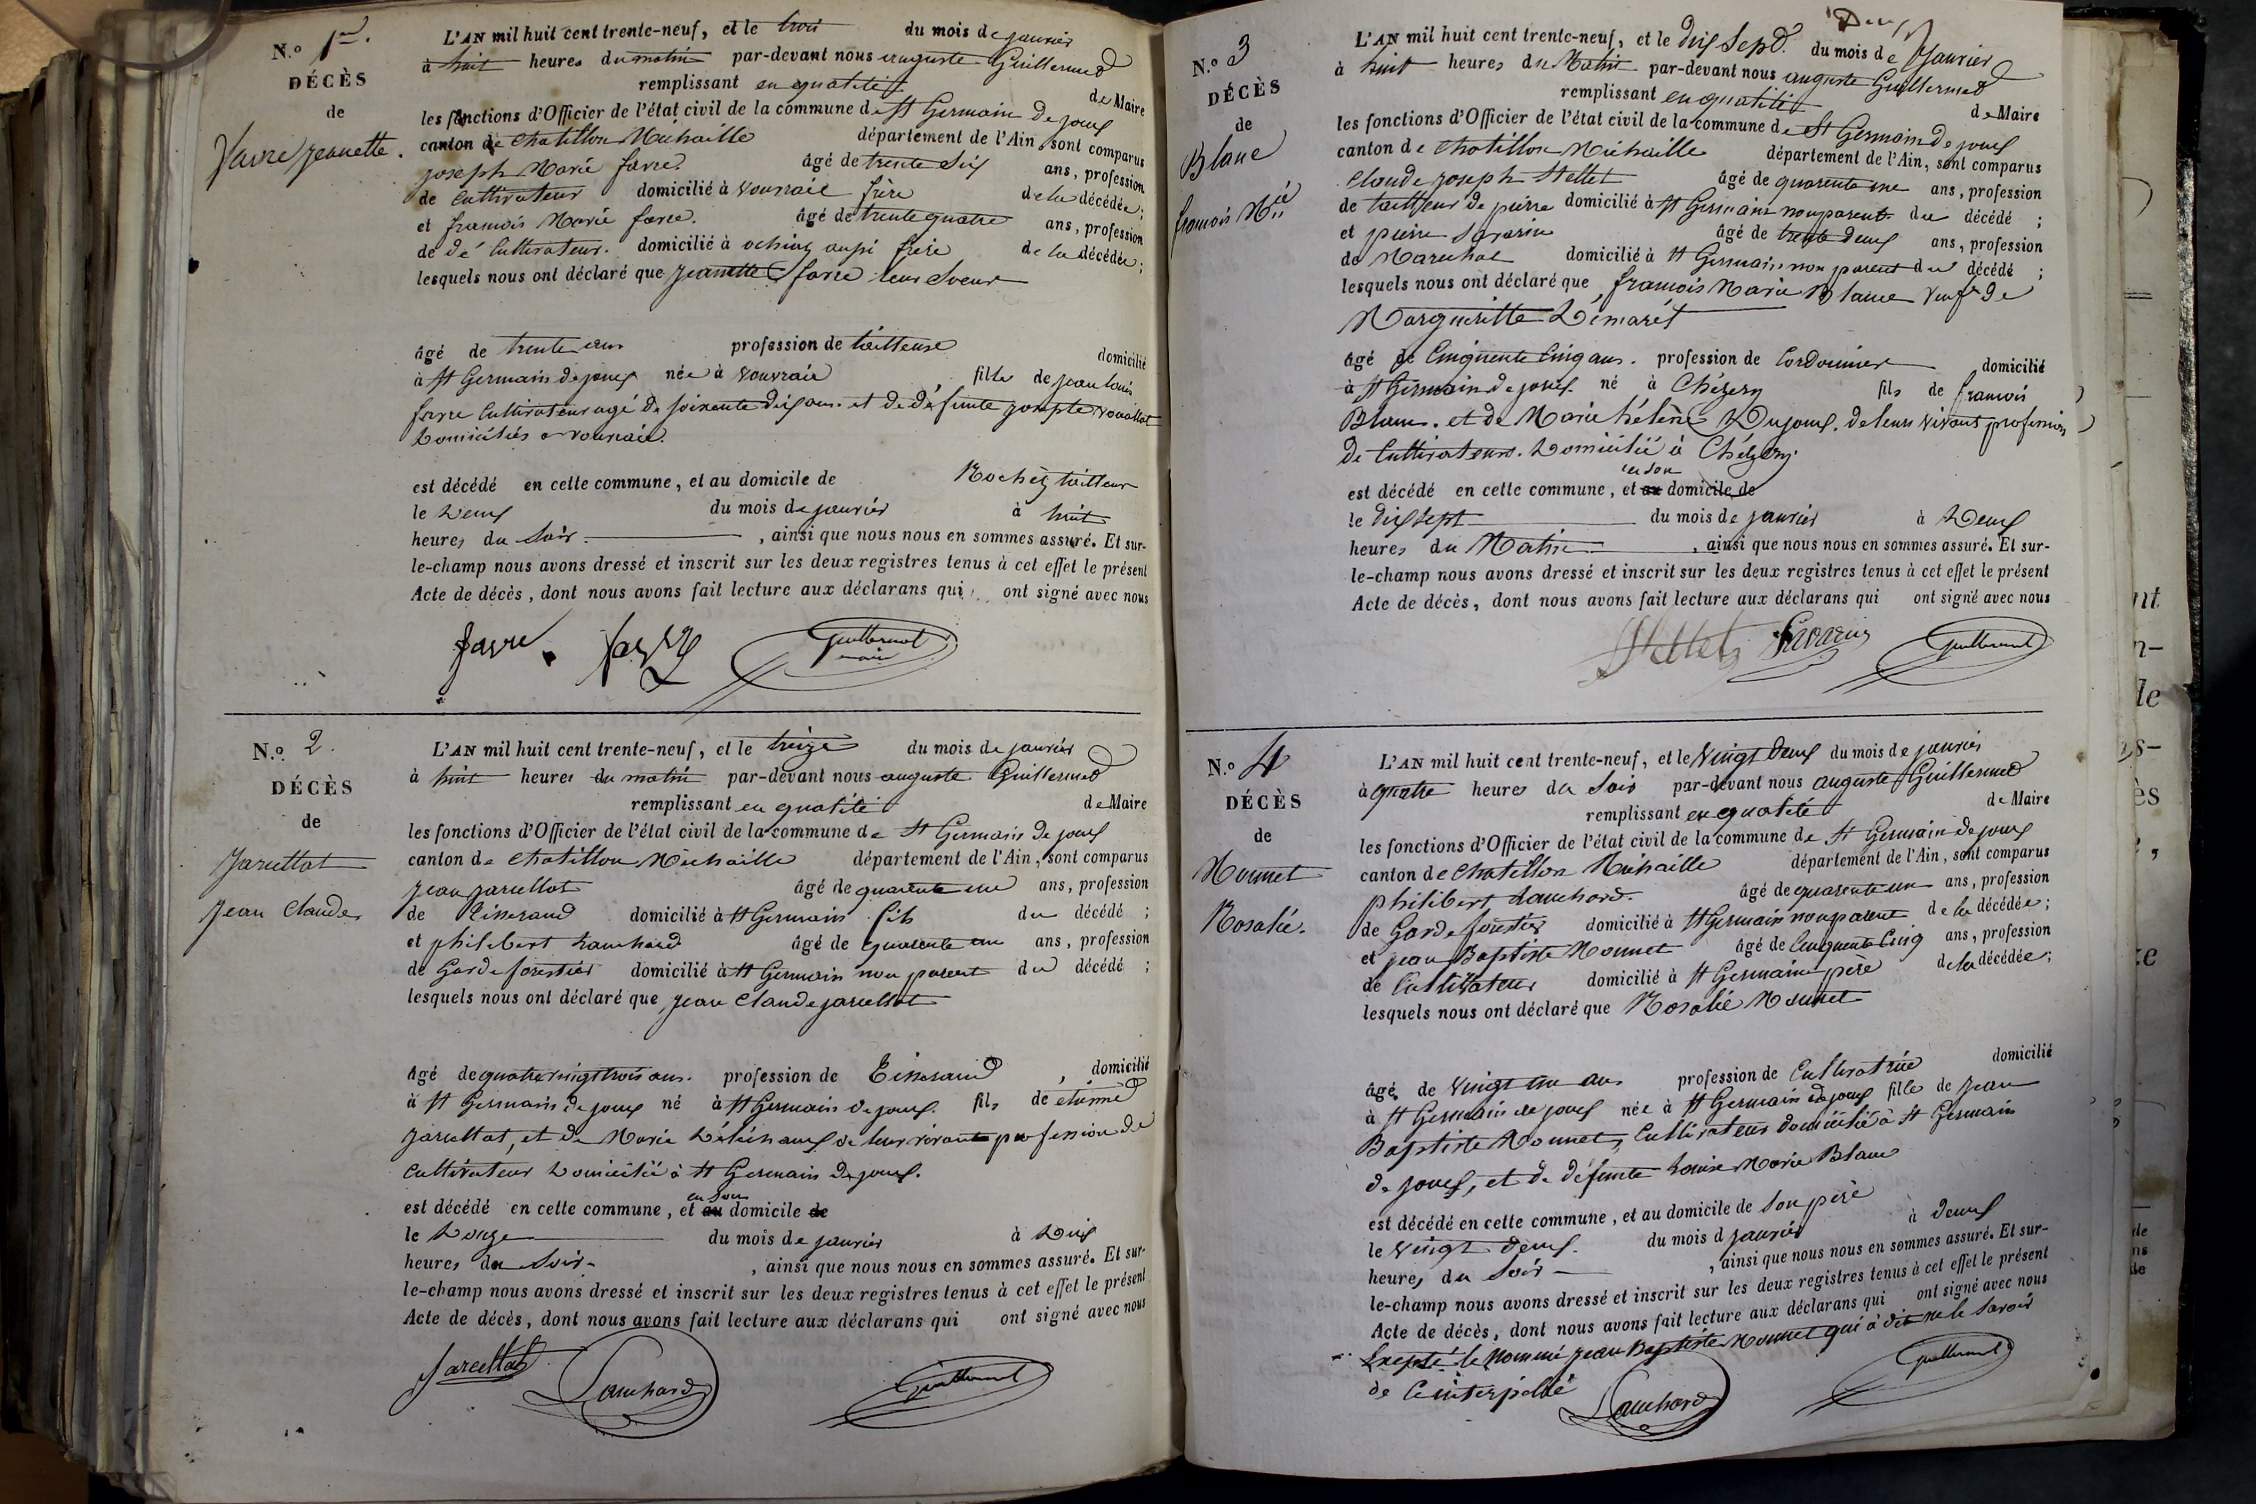 N.º 1er.
DÉCÈS
de
favre jeanette.
L'AN mil huit cent trente-neuf, et le trois du mois de janvier
à huit heures du matin par-devant nous auguste Guillermet
remplissant en qualité de Maire
les fonctions d'Officier de l'état civil de la commune de St Germain de joux
canton de Chatillon Michaille département de l'Ain, sont comparus
joseph Marie favre. âgé de trente six ans, profession
de Cultivateur domicilié à vouvraie frère de la décédée;
et francois Marie favre. âgé de trente quatre ans, profession
de dé Cultivateur. domicilié à ochiaz aussi frère de la décédée;
lesquels nous ont déclaré que jeannette favre leur Soeur
âgé de trente ans profession de tailleuse domicilié
à St Germain de joux née à vouvraie fille de jean louis
favre Cultivateur agé de soixante dix ans. et de défunte
Domiciliés a vouvraie.
est décédé en cette commune, et au domicile de Rochez tailleur
le Deux du mois de janvier à huit
heures du Soir. , ainsi que nous nous en sommes assuré. Et sur-
le-champ nous avons dressé et inscrit sur les deux registres tenus à cet effet le présent
Acte de décès, dont nous avons fait lecture aux déclarans qui ont signé avec nous
favre. favre Guillermet
maire
N.º 2.
DÉCÈS
de
Jarcellat
Jean Claude
L'AN mil huit cent trente-neuf, et le treize du mois de janvier
à huit heures du matin par-devant nous auguste Guillermet
remplissant en qualité de Maire
les fonctions d'Officier de l'état civil de la commune de St Germain de joux
canton de Chatillon Michaille département de l'Ain, sont comparus
jean jarcellat âgé de quarante un ans, profession
de Tisserand domicilié à St Germain fils du décédé;
et philibert Lanchard âgé de quarante un ans, profession
de Garde forestier domicilié à St Germain non parent du décédé;
lesquels nous ont déclaré que jean Claude jarcellat
âgé de quatre vingt trois ans. profession de Tisserand, domicilié
à St Germain de joux né à St Germain de joux. fils de étienne
jarcellat, et de Marie de leur vivants profession de
Cultivateur Domicilié à St Germain de joux.
en son
est décédé en cette commune, et au domicile de
le Douze du mois de janvier à Dix
heures du Soir , ainsi que nous nous en sommes assuré. Et sur-
le-champ nous avons dressé et inscrit sur les deux registres tenus à cet effet le présent
Acte de décès, dont nous avons fait lecture aux déclarans qui ont signé avec nous
Jarcellat Lanchard Guillermet
Deux
N.º 3
DÉCÈS
de
Blanc
francois Mie
L'AN mil huit cent trente-neuf, et le dix Sept du mois de janvier
à huit heures du Matin par-devant nous auguste Guillermet
remplissant en qualité de Maire
les fonctions d'Officier de l'état civil de la commune de St Germain de joux
canton de Chatillon Michaille département de l'Ain, sont comparus
Claude joseph âgé de quarente une ans, profession
de tailleur de pierre domicilié à St Germain non parent du décédé;
et pierre Savarin âgé de trente deux ans, profession
de Marechal domicilié à St Germain non parent du décédé;
lesquels nous ont déclaré que francois Marie Blanc Veuf de
Marguerite
âgé de Cinquente Cinq ans. profession de Cordonnier domicilié
à St Germain de joux. né à Chézery fils de francois
Blanc. et de Marie hélène Dujoux. de leurs vivant profession
de Cultivateurs. Domicilié à Chézery.
en son
est décédé en cette commune, et au domicile de
le dix sept du mois de janvier à Deux
heures du Matin , ainsi que nous nous en sommes assuré. Et sur-
le-champ nous avons dressé et inscrit sur les deux registres tenus à cet effet le présent
Acte de décès, dont nous avons fait lecture aux déclarans qui ont signé avec nous
Savarin Guillermet
N.º 4
DÉCÈS
de
Monnet
Rosalie.
L'AN mil huit cent trente-neuf, et le Vingt Deux du mois de janvier
à quatre heures du Soir par-devant nous auguste Guillermet
remplissant en qualité de Maire
les fonctions d'Officier de l'état civil de la commune de St Germain de joux
canton de Chatillon Michaille département de l'Ain, sont comparus
philibert Lanchard. âgé de quarente un ans, profession
de Garde forestier domicilié à St Germain non parent de la décédée;
et jean Baptiste Monnet âgé de Cinquente Cinq ans, profession
de Cultivateur domicilié à St Germain père de la décédée;
lesquels nous ont déclaré que Rosalie Monnet
âgé de Vingt un ans profession de Cultivatrice domicilié
à St Germain de joux née à St Germain de joux fille de jean
Baptiste Monnet, Cultivateur domicilié à St Germain
de joux, et de défunte Louise Marie Blanc
est décédé en cette commune, et au domicile de Son père
le vingt deux. du mois d janvier à deux
heures du Soir , ainsi que nous nous en sommes assuré. Et sur-
le-champ nous avons dressé et inscrit sur les deux registres tenus à cet effet le présent
Acte de décès, dont nous avons fait lecture aux déclarans qui ont signé avec nous
Excepté le Nommé jean Baptiste Monnet qui à dit ne le Savoir
de Ce interpellé Lanchard Guillermet